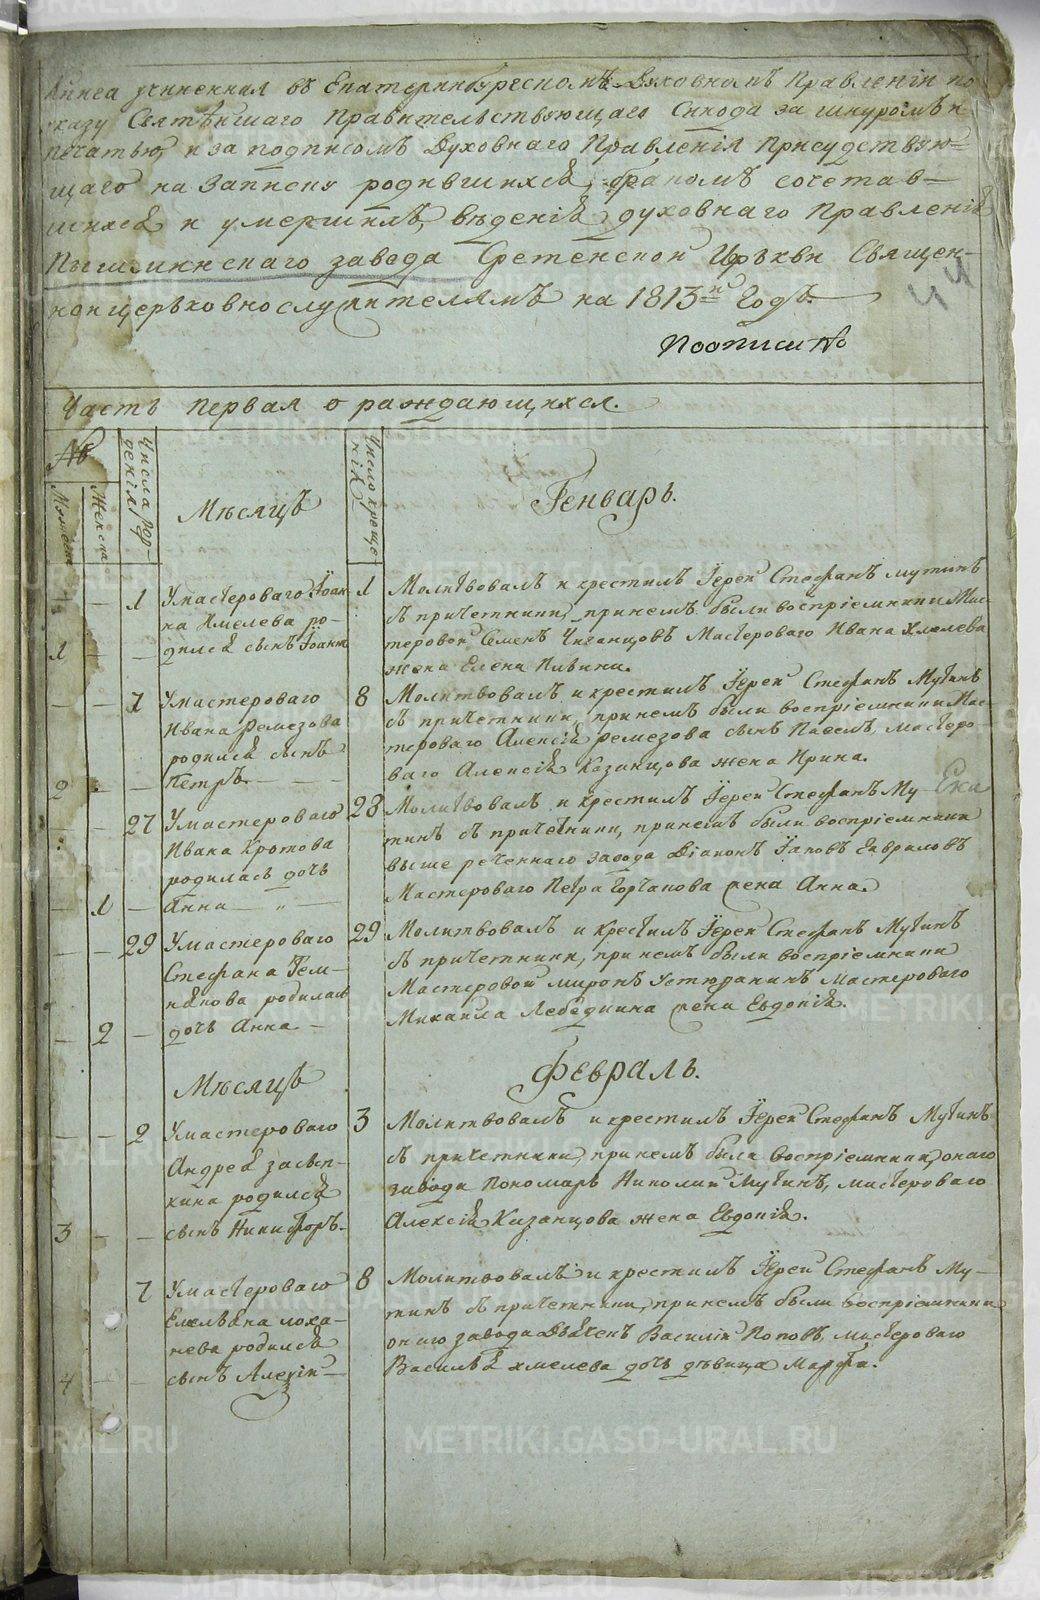 Книга учиненная въ Екатеринбургскомъ Духовномъ Правленіи по
указу Святѣйшаго Правительствующаго Синода за шнуромъ и
печатью, и за подписомъ Духовнаго Правленія Присудствую=
щаго на Записку родившихся, бракомъ сочетав=
шихся и умершихъ, вѣденія духовнаго Правленія
Пышминскаго завода Сретенской Церькви Священ-
ноицерьковнослужителямъ на 1813й Годъ.
44
Поописи №
Часть первая о раждающихся.
№
Мужеска
Женска
Числа рож-
денія
Мѣсяцъ
Число креще
нія
Генварь.
1 Умастероваго Іоан
на Хмелева ро-
дился сынъ Іоаннъ
1
1 Молитвовалъ и крестилъ Іерей Стефанъ Мутинъ
съ причетники, принемъ были воспріемники Мас-
теровой Семенъ Чиганцовъ Мастероваго Ивана Хмелева
жена Елена Ильина.
7 Умастероваго
Ивана Ремезова
родился сынъ
Петръ
2
8 Молитвовалъ и крестилъ Іерей Стефанъ Мутинъ
съ причетники, принемъ были воспріемники Мас-
тероваго Алексія Ремезова сынъ Павелъ, мастеро-
ваго Алексія Казанцова жена Ирина.
27 Умастероваго
Ивана Кротова
родилась дочь
Анна
1
28 Молитвовалъ и крестилъ Іерей Стефанъ Му
тинъ съ причетники, принемъ были воспріемники
выше реченнаго завода Діаконъ Іаковъ
Мастероваго Петра жена Анна.
Ека
29 Умастероваго
Стефана
родилась
дочь Анна
2
29 Молитвовалъ и крестилъ Іерей Стефанъ Мутинъ
съ причетники, принемъ были воспріемники
Мастеровой Миронъ Устюжанинъ Мастероваго
Михаила Лебедкина жена Евдокія.
Мѣсяцъ
Февраль.
2 Умастероваго
Андрея засып-
кина родился
сынъ Никифоръ.
3
3 Молитвовалъ и крестилъ Іерей Стефанъ Мутинъ
съ причетники, принемъ были воспріемники, онаго
завода Пономарь Николай Мутинъ, мастероваго
Алексія Казанцова жена Евдокія.
7 Умастероваго
Емельяна лоха-
нева родился
сынъ Алексій
4
8 Молитвовалъ и крестилъ Іерей Стефанъ Му-
тинъ съ причетники, принемъ были воспріемники
онаго завода Дьяченъ Василій Поповъ, мастероваго
Василья хмелева дочь дѣвица Марфа.
METRIKI.GASO-URAL.RU